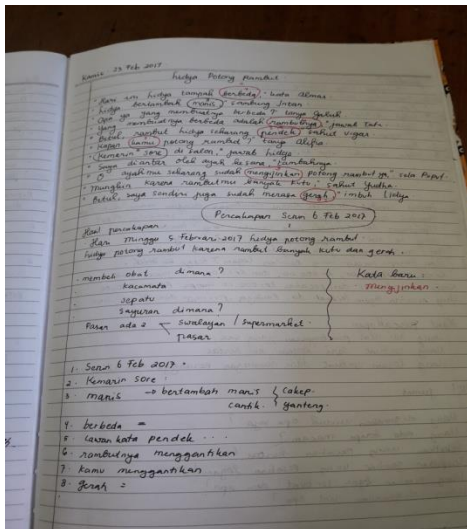 Kamis 23 Feb 2017
hidya Potong rambut
"Hari ini hidya tampak berbeda" kata Almas.
hidya bertambah manis" sambung Intan
Apa ya yang membuatnya berbeda? tanya Galuh
yang membuatnya berbeda adalah rambutnya" jawab Tata
"Betul, rambut hidya sekarang pendek" sahut
"Kapan kamu potong rambut? tanya Alifia
"Kemarin sore di salon" jawab hidya
diantar oleh ayah kesana" tambahnya
"O ayahmu sekarang sudah mengijinkan potong rambut ya" sela Puput
Mungkin karena rambutmu banyak kutu", sahut Yudha
"Betul, saya sendiri juga sudah merasa gerah" imbuh
Percakapan Senin 6 Feb 2017
Hasil percakapan.
Hari Minggu 5 Februari 2017 hidya potong rambut
hidya potong rambut karena rambut banyak kutu dan gerah.
membeli obat dimana?
kacamata
sepatu
sayuran dimana?
Pasar ada 2 swalayan / supermarket.
pasar
Kata baru:
mengijinkan.
1. Senin 6 Feb 2017.
2. Kemarin sore:
3. manis → bertambah manis cakep.
cantik. ganteng.
4. berbeda =
5. Lawan kata pendek ...
6. rambutnya menggantikan
7. kamu menggantikan
8. gerah =